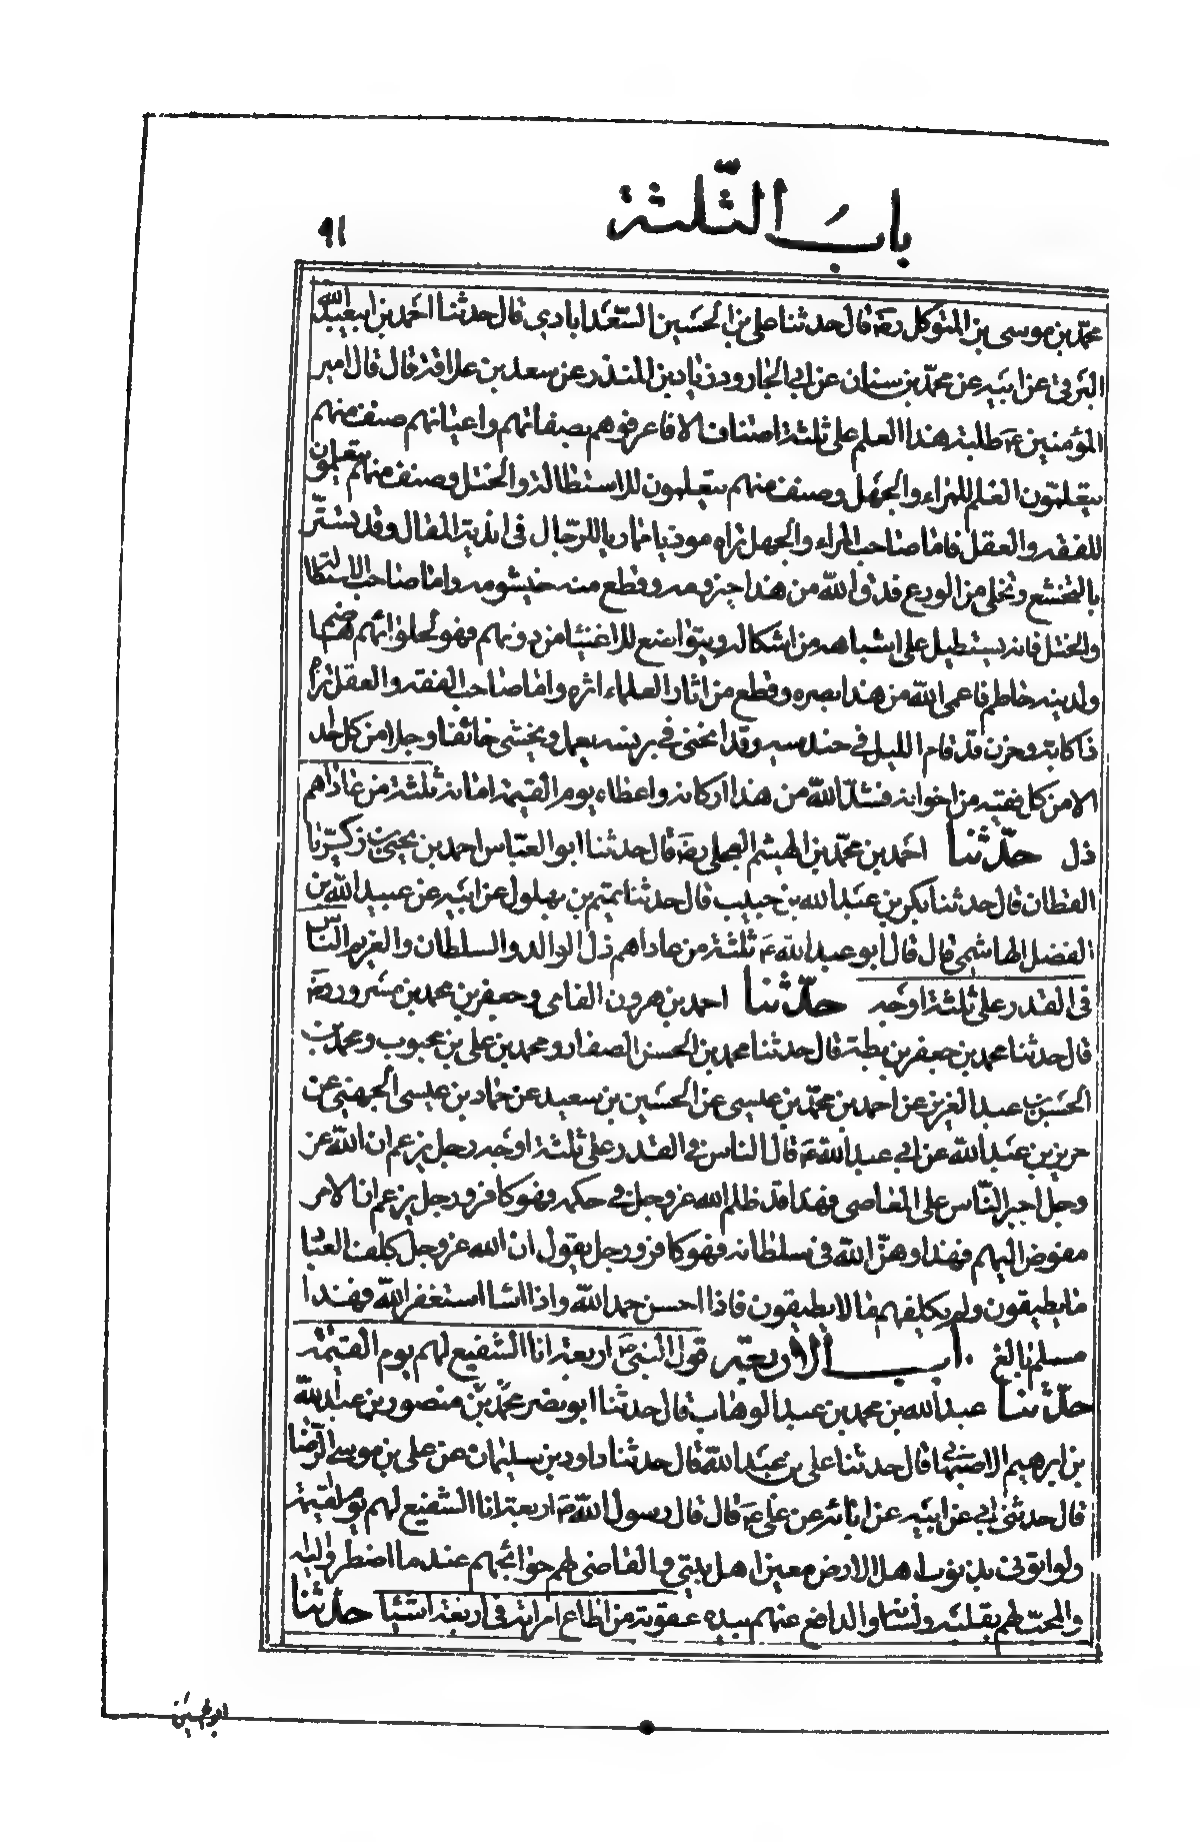 باب الثلثة
٩١
محمد بن موسى بن المتوكل رضه قال حدثنا علي بن الحسين السعدابادي قال حدثنا احمد بن ابيعبد الله
البرقي عن ابيه عن محمد بن سنان عن ابي الجارود زياد بن المنذر عن سعد بن علاقة قال قال امير
المؤمنين ع طلبة هذا العلم على ثلثة اصناف الا فاعرفوهم بصفاتهم واعيانهم صنف منهم
يتعلمون العلم للمراء والجهل وصنف منهم يتعلمون للاستطالة والختل وصنف منهم يتعلمون
للفقه والعقل فاما صاحب المراء والجهل تراه موذيا مماريا للرجال في اندية المقال وقد تستر
بالتخشع وتخلى من الورع فدق الله من هذا حيزومه وقطع منه خيشومه واما صاحب الاستطالة
والختل فانه يستطيل على اشباهه من اشكاله ويتواضع للاغنياء من دونهم فهو لحلوائهم هاضم
ولدينه حاطم فاعمى الله من هذا بصره وقطع من اثار العلماء اثره واما صاحب الفقه والعقل تراه
ذا كابة وحزن قد قام الليل في حندسه وقد انحنى في برنسه يعمل ويخشى خائفا وجلا من كل احد
الا من كل فقيه من اخوانه فشد الله من هذا اركانه واعطاه يوم القيمة امانه ثلثة من عاداهم
ذل حدثنا احمد بن محمد بن الهيثم العجلي رضه قال حدثنا ابو العباس احمد بن يحيى بن زكريا
القطان قال حدثنا بكر بن عبد الله بن حبيب قال حدثنا تميم بن بهلول عن ابيه عن عبيد الله بن
الفضل الهاشمي قال قال ابو عبد الله ع ثلثة من عاداهم ذل الوالد والسلطان والغريم الناس
في القدر على ثلثة اوجه حدثنا احمد بن هرون الفامي وجعفر بن محمد بن مسرور رضه
قال حدثنا محمد بن جعفر بن بطة قال حدثنا محمد بن الحسن الصفار ومحمد بن علي بن محبوب ومحمد بن
الحسن بن عبد العزيز عن احمد بن محمد بن عيسى عن الحسين بن سعيد عن حماد بن عيسى الجهني عن
حريز بن عبد الله عن ابي عبد الله ع قال الناس في القدر على ثلثة اوجه رجل يزعم ان الله عز
وجل اجبر الناس على المعاصي فهذا قد ظلم الله عز وجل في حكمه وهو كافر ورجل يزعم ان الامر
مفوض اليهم فهذا وهن الله في سلطانه فهو كافر ورجل يقول ان الله عز وجل كلف العباد
ما يطيقون ولم يكلفهم ما لا يطيقون فاذا احسن حمد الله واذا اسا استغفر الله فهذا
مسلم بالغ باب الاربعة قول النبي ص اربعة انا الشفيع لهم يوم القيمة
حدثنا عبد الله بن محمد بن عبد الوهاب قال حدثنا ابو نصر محمد بن منصور بن عبد الله
بن ابرهيم الاصبهاني قال حدثنا علي بن عبد الله قال حدثنا داود بن سليمان عن علي بن موسى الرضا
قال حدثني ابي عن ابيه عن ابائه عن علي ع قال قال رسول الله ص اربعة انا الشفيع لهم يوم القيمة
ولو اتوني بذنوب اهل الارض معين اهل بيتي والقاضي لهم حوائجهم عند ما اضطروا اليه
والمحب لهم بقلبه ولسانه والدافع عنهم بيده عقوبة من اطاع امراته في اربعة اشياء حدثنا
ابو الحسين